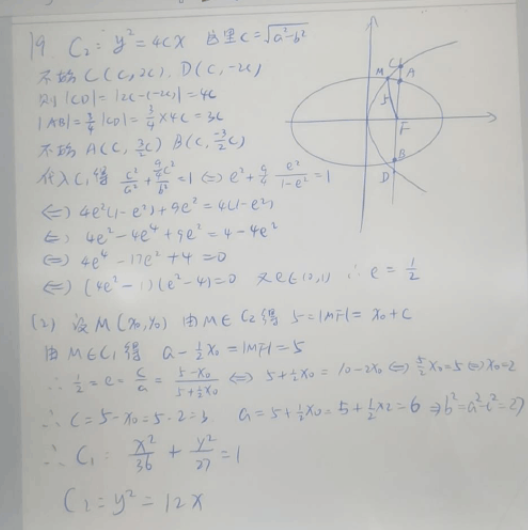 19. C₂: y²=4cx 这里c=√(a²-b²)
不妨 C(c,2c). D(c,-2c)
则|CD|=|2c-(-2c)|=4c
|AB|=3/4|CD|=3/4×4c=3c
不妨 A(c, 3/2c) B(c, -3/2c)
代入C₁得 c²/a²+(9/4c²)/b²=1 ⇔ e²+9/4 e²/(1-e²)=1
⇔ 4e²(1-e²)+9e²=4(1-e²)
⇔ 4e²-4e⁴+9e²=4-4e²
⇔ 4e⁴-17e²+4=0
⇔ (4e²-1)(e²-4)=0 又e∈(0,1) ∴ e=1/2
(2) 设M(x₀,y₀) 由M∈C₂得 5=|MF|=x₀+c
由M∈C₁得 a-1/2x₀=|MF|=5
∴ 1/2=e=c/a=(5-x₀)/(5+1/2x₀) ⇔ 5+1/2x₀=10-2x₀ ⇔ 5/2x₀=5 ⇔ x₀=2
∴ c=5-x₀=5-2=3. a=5+1/2x₀=5+1/2×2=6 ⇒ b²=a²-c²=27
∴ C₁: x²/36+y²/27=1
C₂=y²=12x
M
C
A
5
F
B
D